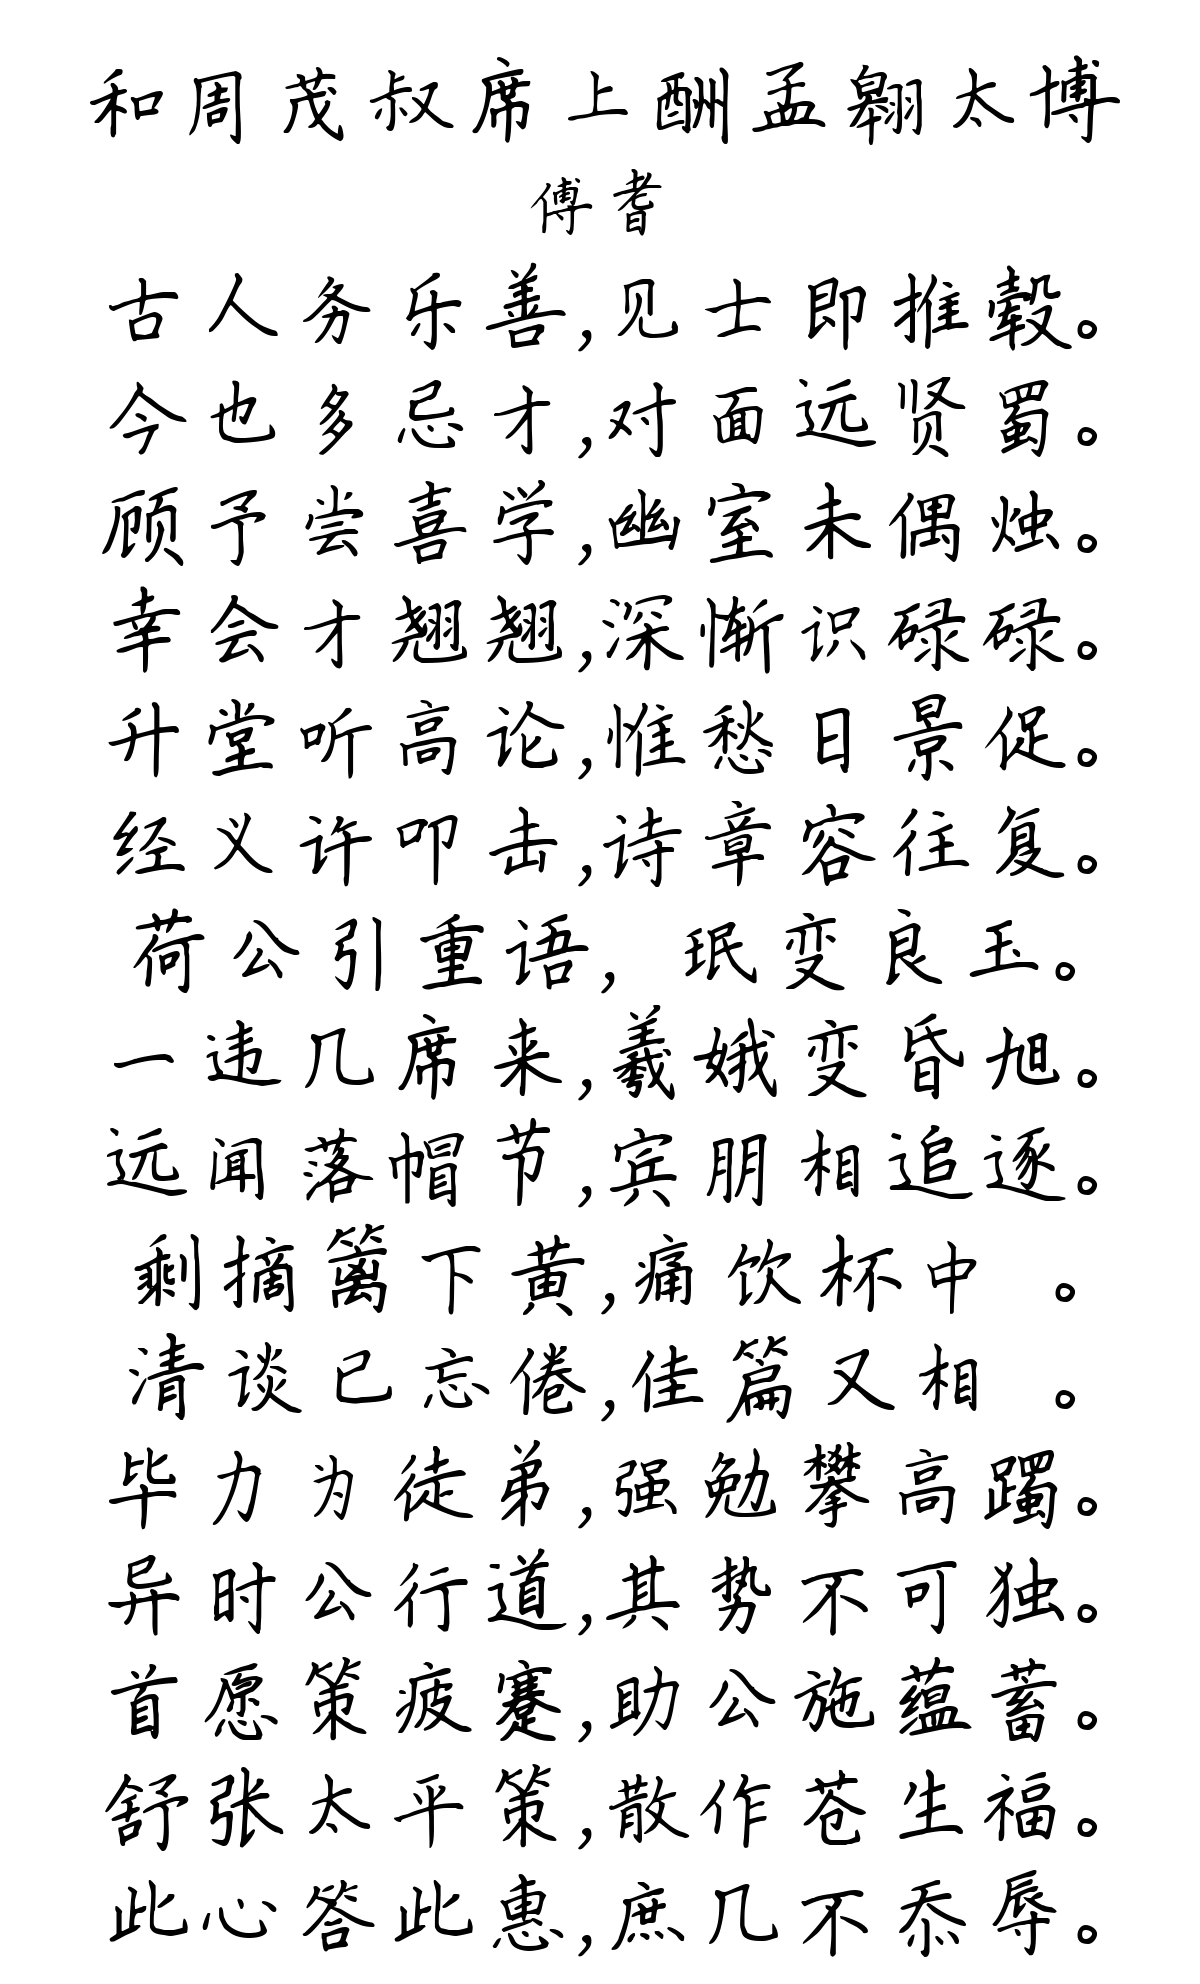 和周茂叔席上酬孟翱太博
傅耆
古人务乐善,见士即推毂。
今也多忌才,对面远贤蜀。
顾予尝喜学,幽室未偶烛。
幸会才翘翘,深惭识碌碌。
升堂听高论,惟愁日景促。
经义许叩击,诗章容往复。
荷公引重语,珉变良玉。
一违几席来,羲娥变昏旭。
远闻落帽节,宾朋相追逐。
剩摘篱下黄,痛饮杯中 。
清谈已忘倦,佳篇又相 。
毕力为徒弟,强勉攀高躅。
异时公行道,其势不可独。
首愿策疲蹇,助公施蕴蓄。
舒张太平策,散作苍生福。
此心答此惠,庶几不忝辱。